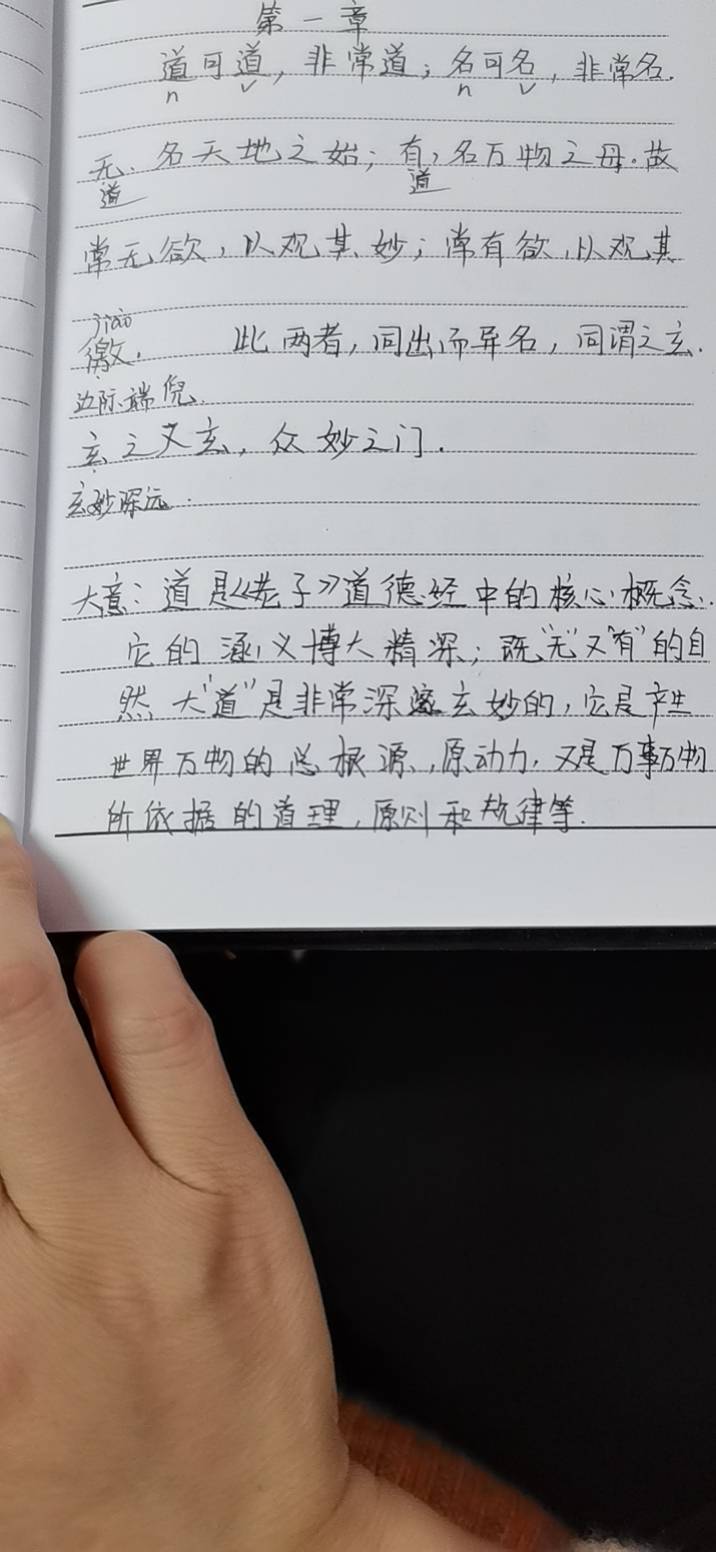 第一章
道可道，非常道；名可名，非常名.
n v n v
无，名天地之始；有，名万物之母.故
道 道
常无欲，以观其妙；常有欲，以观其
jiào
徼. 此两者，同出而异名，同谓之玄.
边际.端倪.
玄之又玄，众妙之门.
玄妙深远.
大意：道是《老子》道德经中的核心概念.
它的涵义博大精深；既"无"又"有"的自
然大"道"是非常深邃玄妙的，它是产生
世界万物的总根源，原动力，又是万事万物
所依据的道理，原则和规律等.